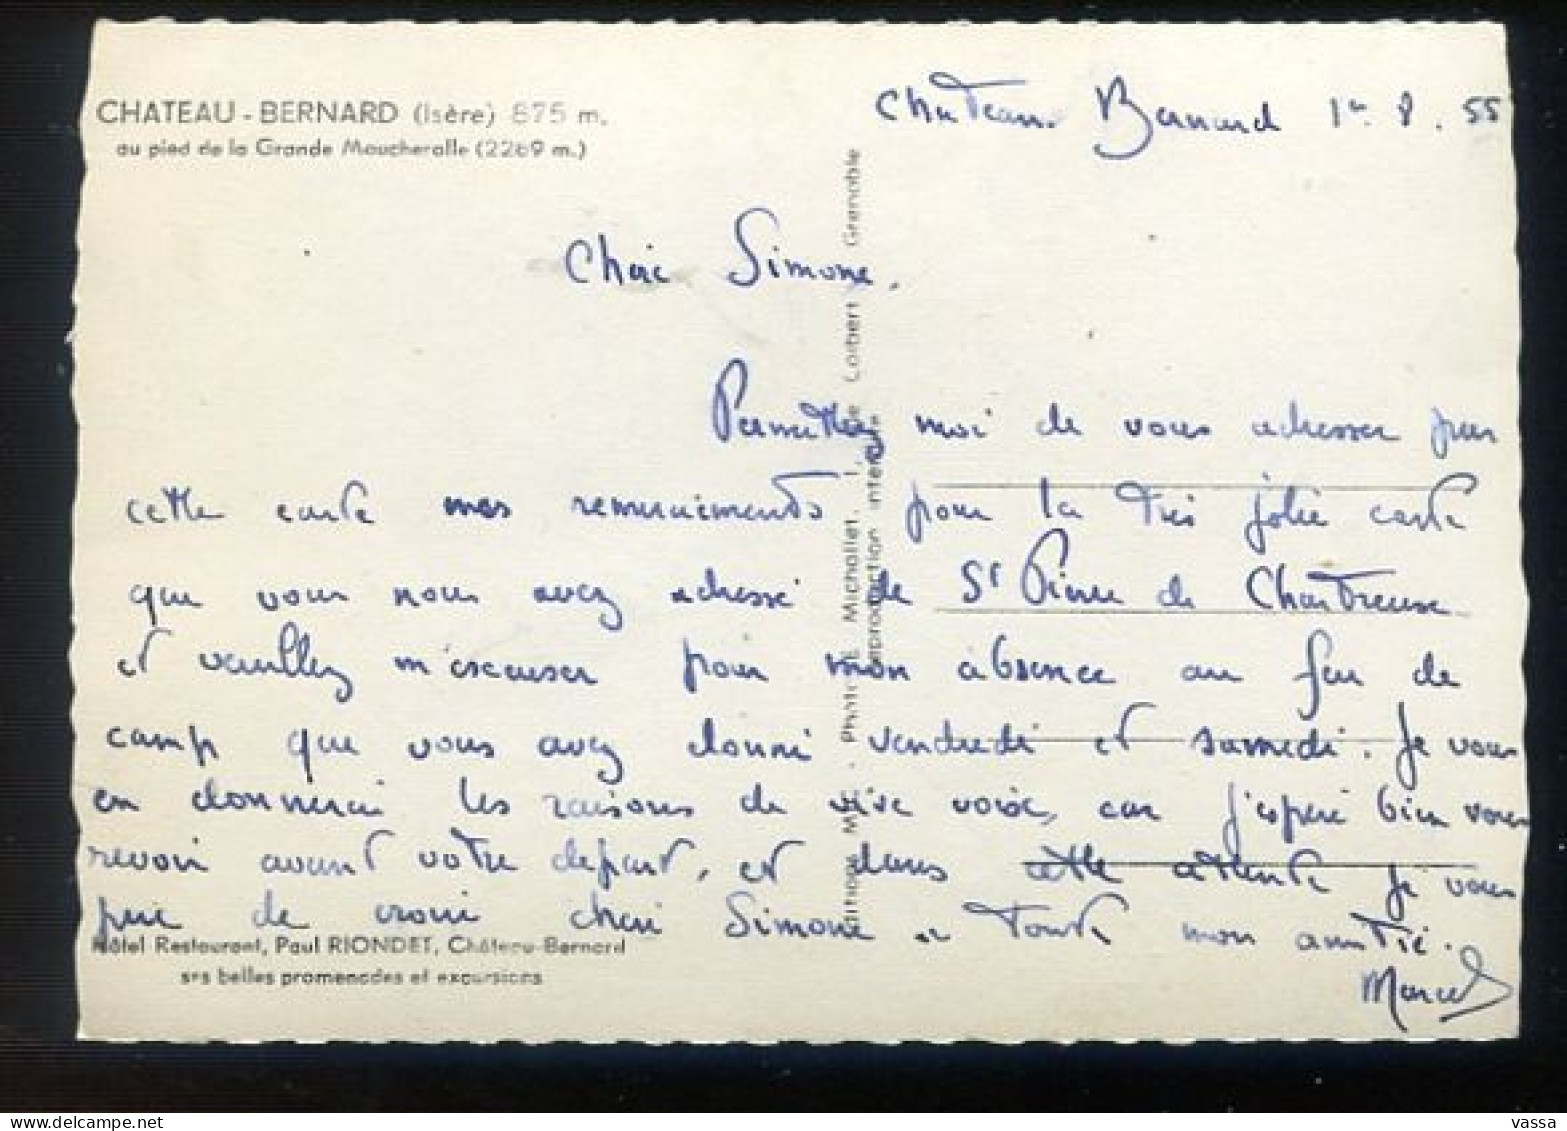 CHATEAU - BERNARD (Isère) 875 m.
au pied de la Grande Moucherolle (2269 m.)
Château Bernard 1er 8. 55
Chère Simone.
Permettez moi de vous adresser par
cette carte mes remerciements pour la très jolie carte
que vous nous avez adressé de St Pierre de Chartreuse
et veuillez m'excuser pour mon absence au feu de
camp que vous avez donné vendredi et samedi. Je vous
en donnerai les raisons de vive voix, car j'espère bien vous
revoir avant votre départ, et dans cette attente je vous
prie de croire chère Simone à toute mon amitié.
Marcel
Hôtel Restaurant, Paul RIONDET, Château-Bernard
ses belles promenades et excursions
Editions M - Photo E. Michallet, 1, Colbert Grenoble
Reproduction interdite
delcampe.net
vassa